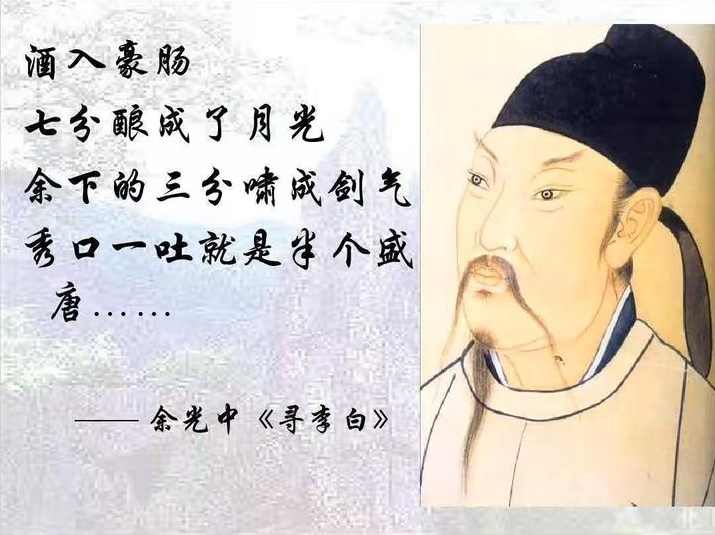 酒入豪肠
七分酿成了月光
余下的三分啸成剑气
秀口一吐就是半个盛
唐……
—— 余光中《寻李白》